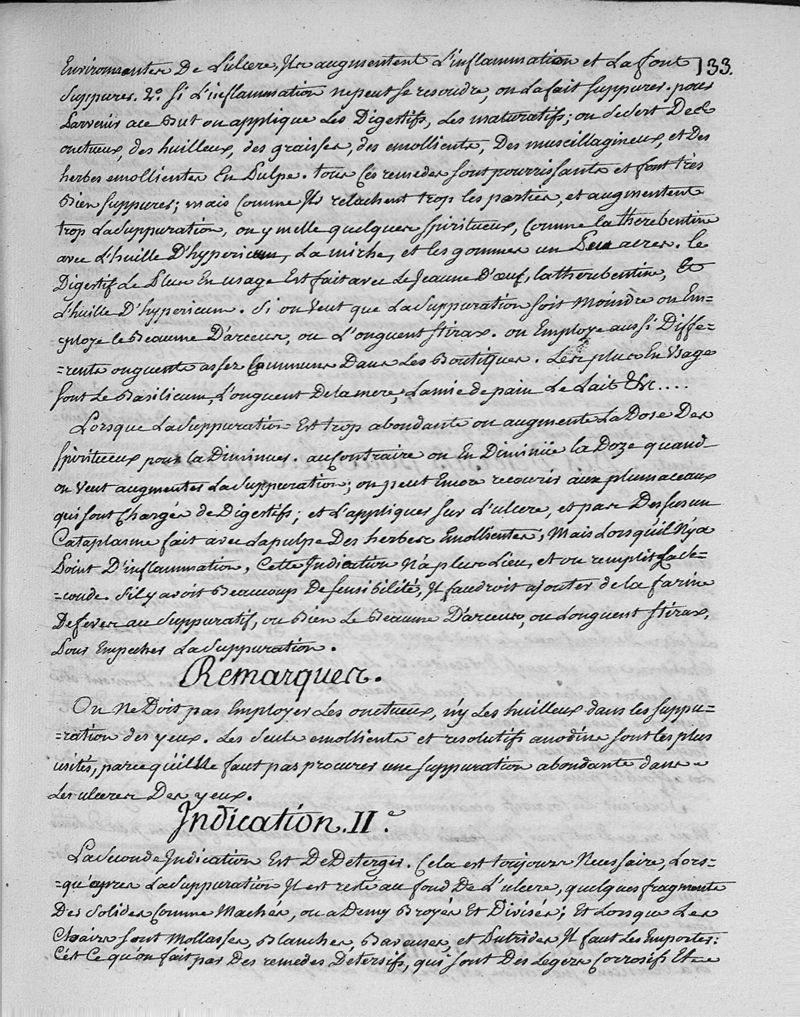 133.
Environnantes De L'ulcere, Ils augmentent L'inflammation et La font
suppurer. 2.o Si L'inflammation ne peut se resoudre, on La fait suppurer. pour
Parvenir a ce But on applique Les Digestifs, Les maturatifs; on se sert Des
onctueux, des huilleux, des graisses, des emollients, Des muscillagineux, et Des
herbes emollientes En Pulpe. tous Ces remedes sont pourrissants et font très
Bien suppurer; mais Comme Ils relachent trop les parties, et augmentent
trop La suppuration, on y melle quelques spiritueux, Comme la therebentine
avec L'huille D'hypericum, La mirhe, et les gommes un Peu acres. le
Digestif Le Plus En usage Est fait avec Le Jeaune D'oeuf, la therebentine, Et
L'huille D'hypericum. Si on Veut que La suppuration soit Moindre on Em=
=ploye le Beaume D'arceus, ou L'onguent stirax. on Employe aussi Diffe=
=rents onguents assez Communs Dans Les Boutiques. Les plus En Usage
sont Le Basilicum, L'onguent De la mere, La mie de pain Le Lait &c....
Lorsque La suppuration Est trop abondante on augmente La Dose Des
spiritueux pour la Diminuer. au Contraire on En Diminüe la Doze quand
on Veut augmenter La suppuration; on peut Encore recourir aux plumaceaux
qui sont Chargés de Digestifs; et L'appliquer sur L'ulcere, et par Dessus un
Cataplasme fait avec La pulpe Des herbes Emollientes; Mais Lorsqu'il N'y a
Point D'inflammation, Cette Indication N'a plus Lieu, et on remplit La se=
=conde. S'il y avoit Beaucoup De sensibilité, Il faudroit ajouter de la farine
De feves au suppuratif, ou Bien Le Beaume D'arceus, ou L'onguent stirax,
Pour Empecher La suppuration.
Remarques.
On Ne Doit pas Employer Les onctueux, n'y Les huilleux dans les suppu=
=ration des yeux. Les seuls emollients et resolutifs anodins sont les plus
usités, parce qu'il Ne faut pas procurer une suppuration abondante dans
Les ulceres Des yeux.
Indication. II.e
La Seconde Indication Est De Deterger. Cela est toujours Necessaire, Lors=
=qu'apres La suppuration Il est resté au fond De L'ulcere, quelques fragments
Des solides Comme Machés, ou a Demy Broyés Et Divisés; Et Lorsque Les
Chairs sont Mollasses, Blanches, Baveuses, et Putrides Il faut Les Emporter:
C'ést Ce qu'on fait par Des remedes Detersifs, qui sont Des Legers Corrosifs Et